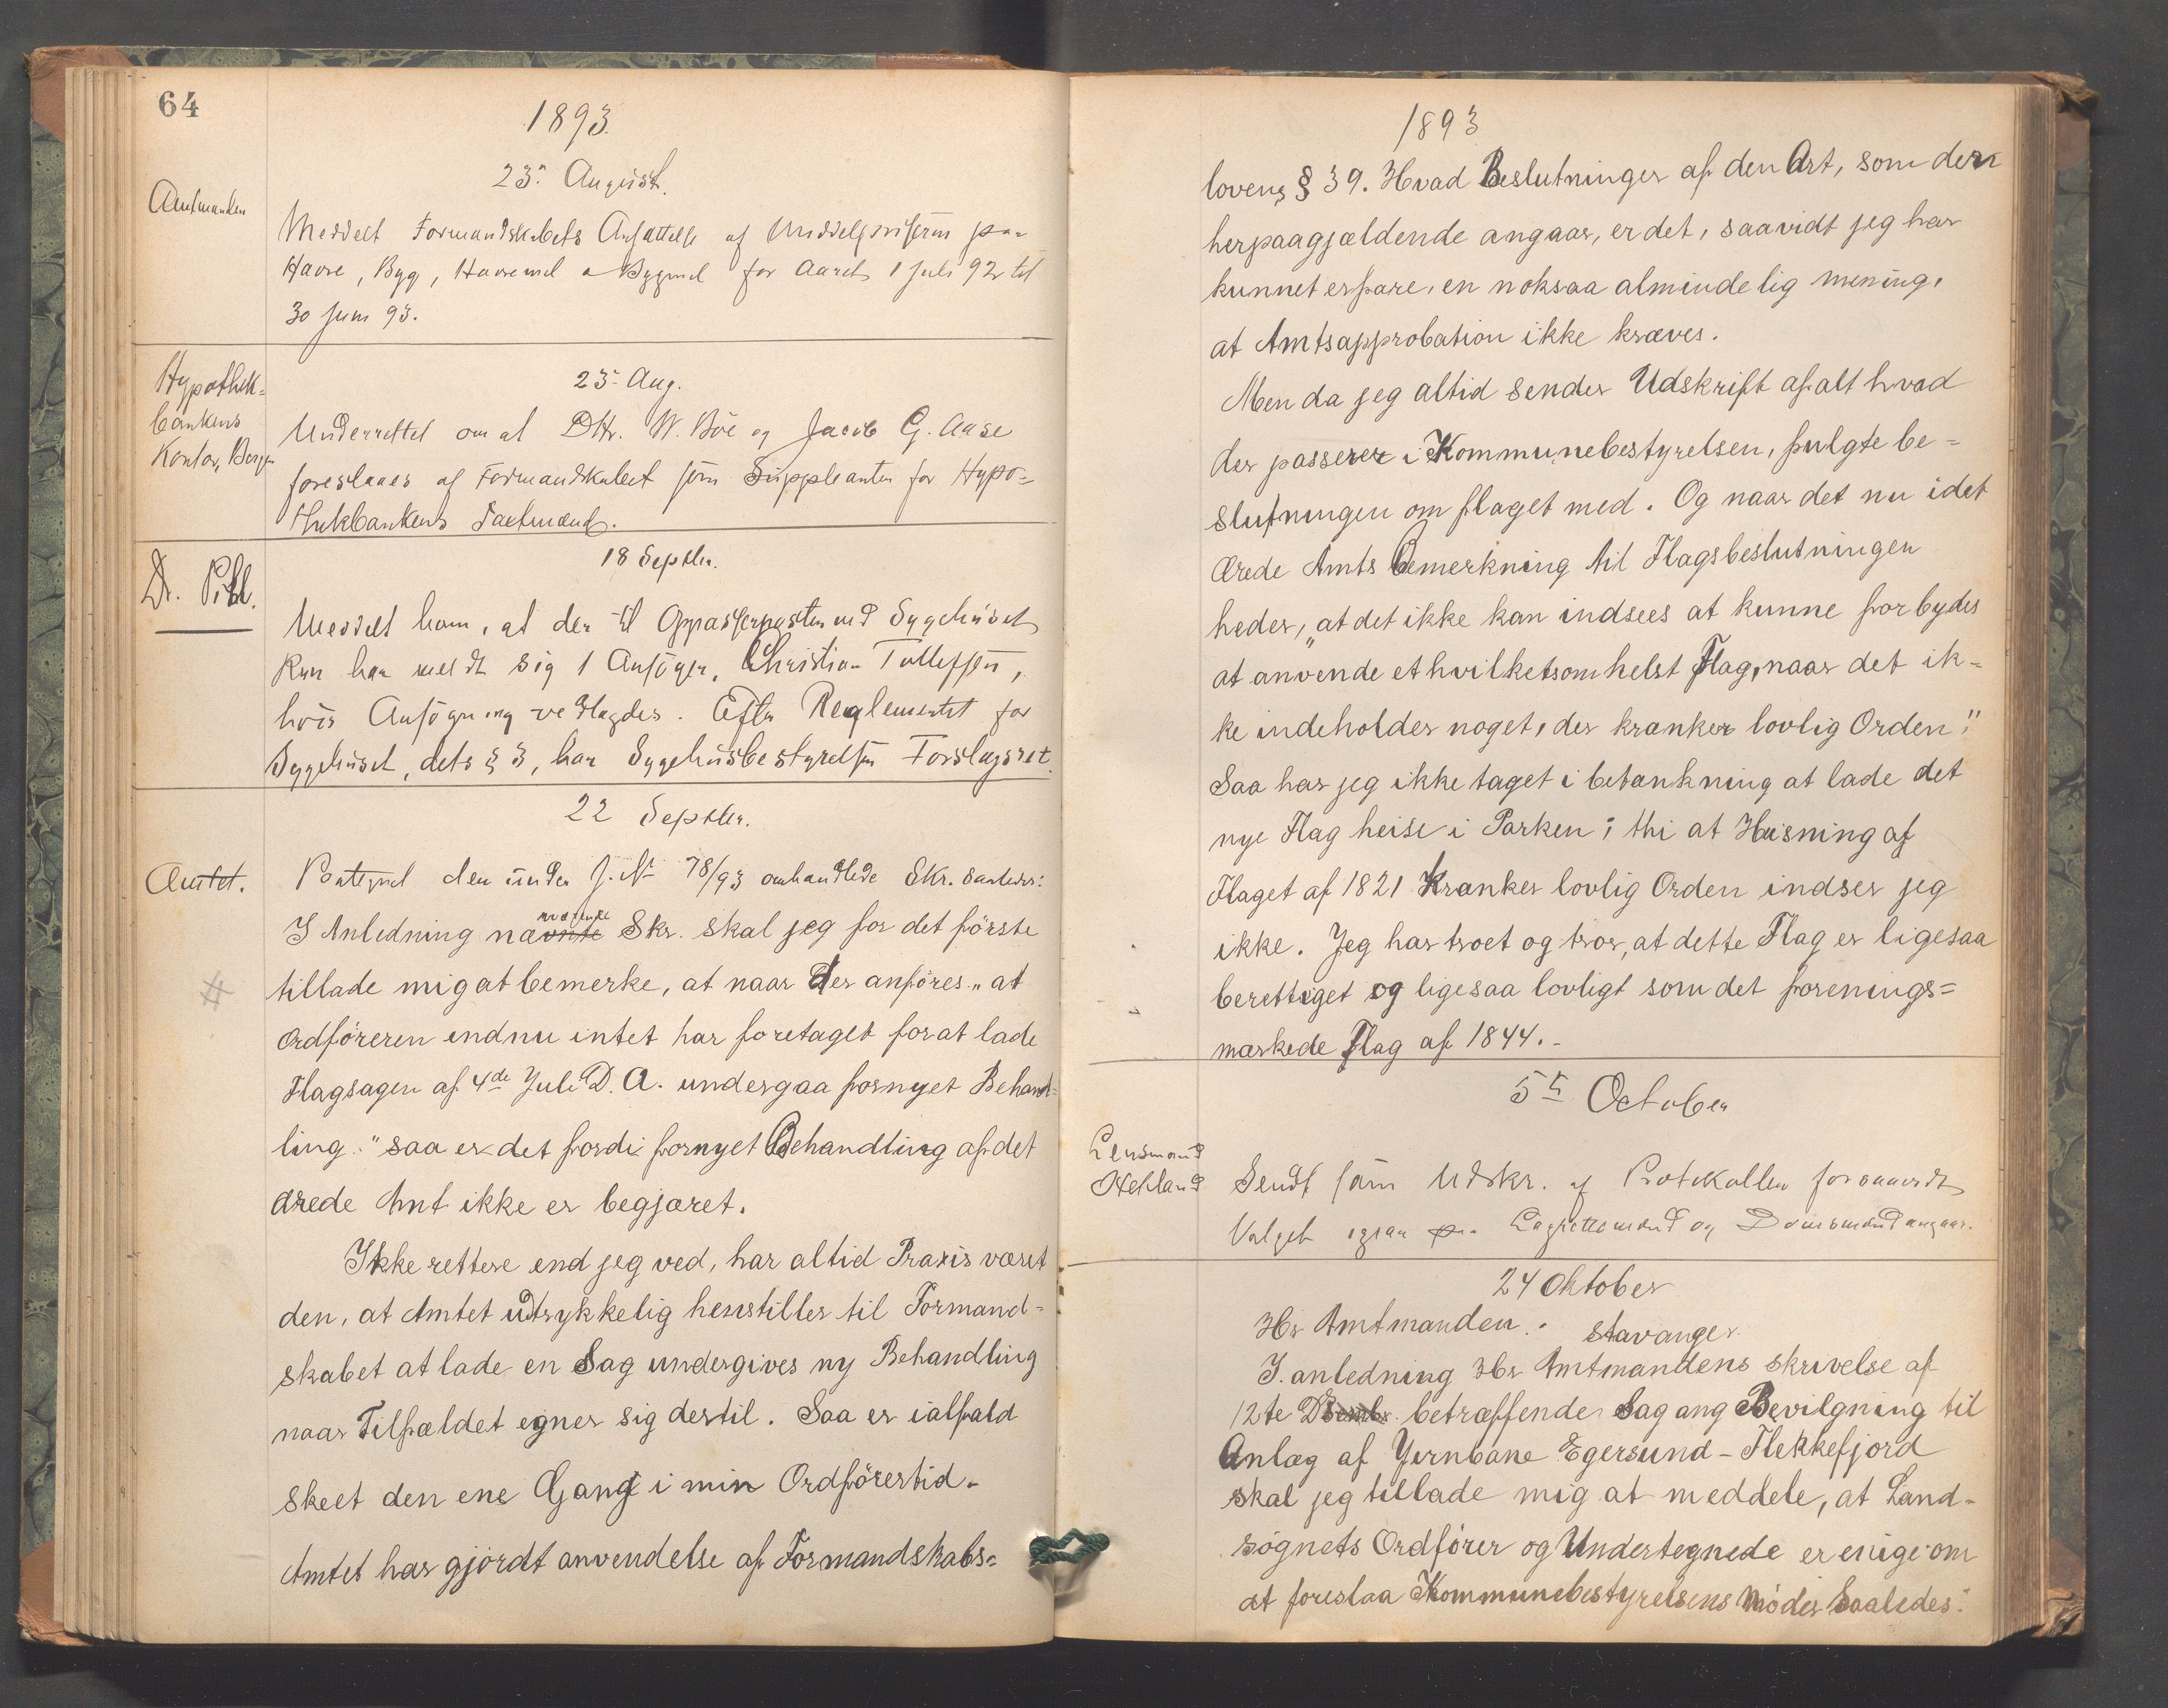 64
1893
23. August.
Amtmanden
Meddelt Formandskabets Ansættelse af Middelpriserne paa
Havre, Byg, Havremel o Bygmel for Aaret 1 Juli 92 til
30 Juni 93.
Hypothek-
bankens
Kontor, Bergen
23. Aug.
Underrettet om at DHr. W. Böe og Jacob G. Aase
foreslaaes af Formandskabet som Suppleanter for Hypo=
thekbankens Taxtmænd.
18 Septbr.
Dr. Pihl.
Meddelt ham, at der til Oppasserposten ved Sygehuset
kun har meldt sig 1 Ansöger, Christian Tollefsen,
hvis Ansögning vedlagdes. Efter Reglementet for
Sygehuset, dets § 3, har Sygehusbestyrelsen Forslagsret.
22 Septbr.
Amtet.
Paategnet den under J. No 78/93 omhandlede Skr. saaledes:
I Anledning nævnte Skr. skal jeg for det förste
tillade mig at bemerke, at naar der anföres „at
Ordföreren endnu intet har foretaget for at lade
Flagsagen af 4de Juli D. A. undergaa fornyet Behand=
ling." saa er det fordi fornyet Behandling af det
ærede Amt ikke er begjæret.
Ikke rettere end jeg ved, har altid Praxis været
den, at Amtet udtrykkelig henstiller til Formand=
skabet at lade en Sag undergives ny Behandling
naar Tilfældet egner sig dertil. Saa er ialfald
skeet den ene Gang i min Ordförertid.
Amtet har gjördt anvendelse af Formandskabs=
1893
lovens § 39. Hvad Beslutninger af den Art, som den
herpaagjældende angaar, er det, saavidt jeg har
kunnet erfare, en noksaa almindelig mening,
at Amtsapprobation ikke kræves.
Men da jeg altid sender Udskrift af alt hvad
der passerer i Kommunebestyrelsen, fulgte be=
slutningen om flaget med. Og naar det nu i det
ærede Amts Bemerkning til Flagsbeslutningen
heder, „at det ikke kan indsees at kunne forbydes
at anvende et hvilketsomhelst Flag, naar det ik=
ke indeholder noget, der krænker lovlig Orden"
Saa har jeg ikke taget i betænkning at lade det
nye Flag heise i Parken; thi at Heisning af
Flaget af 1821 Krænker lovlig Orden indser jeg
ikke. Jeg har troet og tror, at dette Flag er ligesaa
berettiget og ligesaa lovligt som det forenings=
mærkede Flag af 1844.
5te October
Lensmand
Hetland
Sendt ham Udskr. af Protokollen forsaavidt
Valget igaar paa Lagrettemænd og Domsmænd angaar.
24 Oktober
Hr Amtmanden. Stavanger.
I. anledning Hr Amtmandens skrivelse af
12te betræffende Sag ang Bevilgning til
Anlæg af Yernbane Egersund - Flekkefjord
skal jeg tillade mig at meddele, at Land-
sögnets Ordförer og Undertegnede er enige om
at foreslaa Kommunebestyrelsens Möder Saaledes: